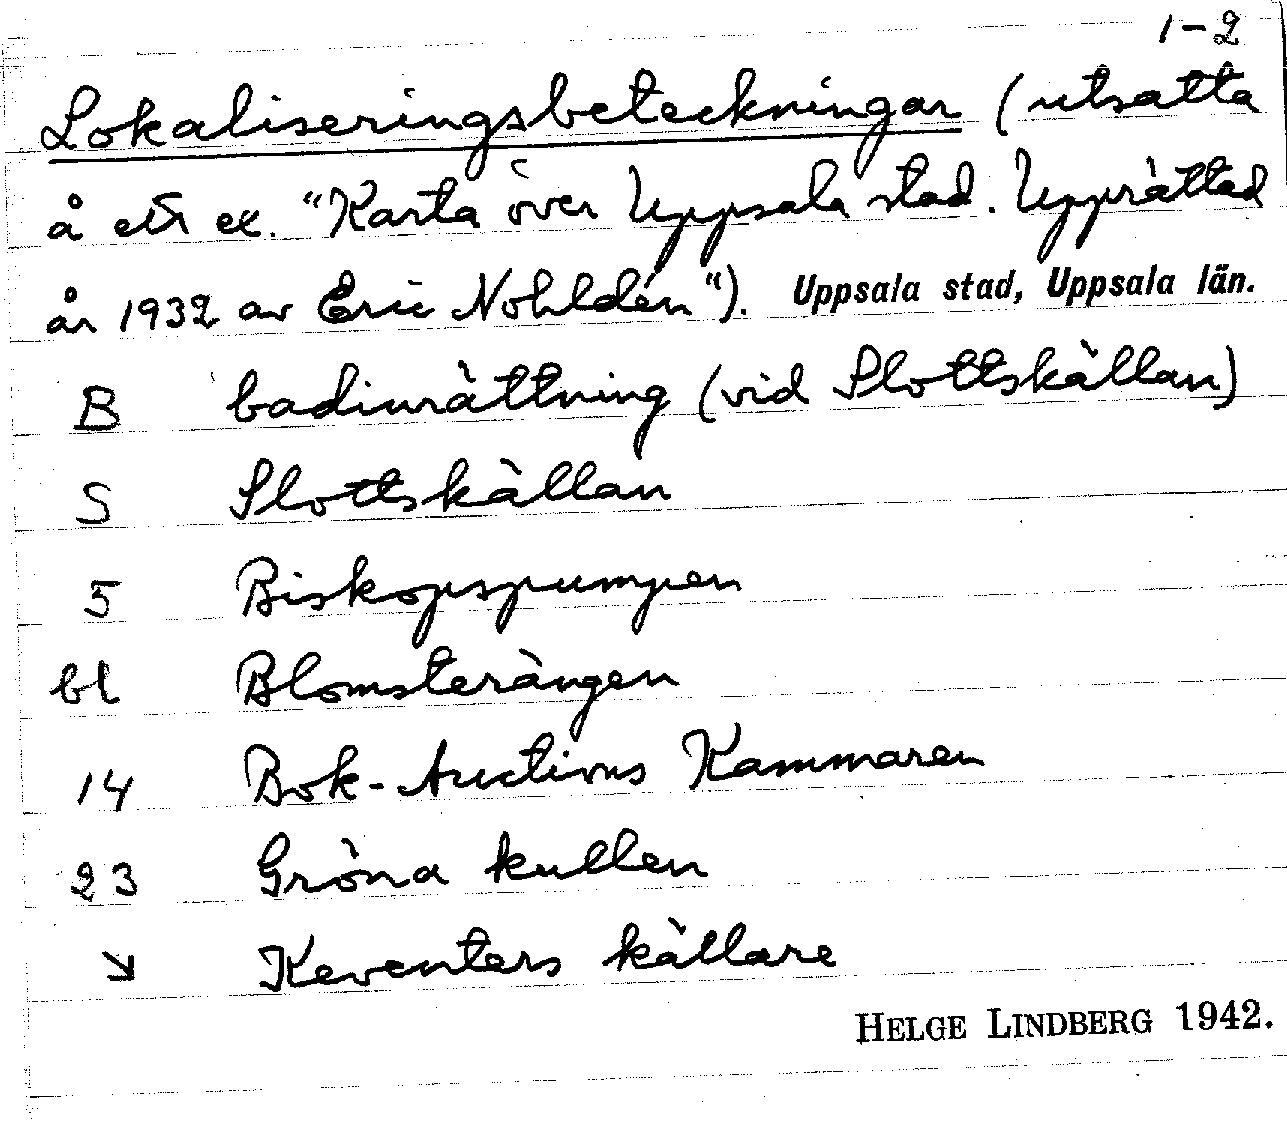 1-2
Lokaliseringsbeteckningar (utsatta
å ett ex. "Karta över Uppsala stad. Upprättad
år 1932 av Eric Nohldén"). Uppsala stad, Uppsala län.
B badinrättning (vid Slottskällan)
S Slottskällan
5 Biskopspumpen
bl Blomsterängen
14 Bok-Auctions Kammaren
23 Gröna kullen
↘ Keventers källare
HELGE LINDBERG 1942.